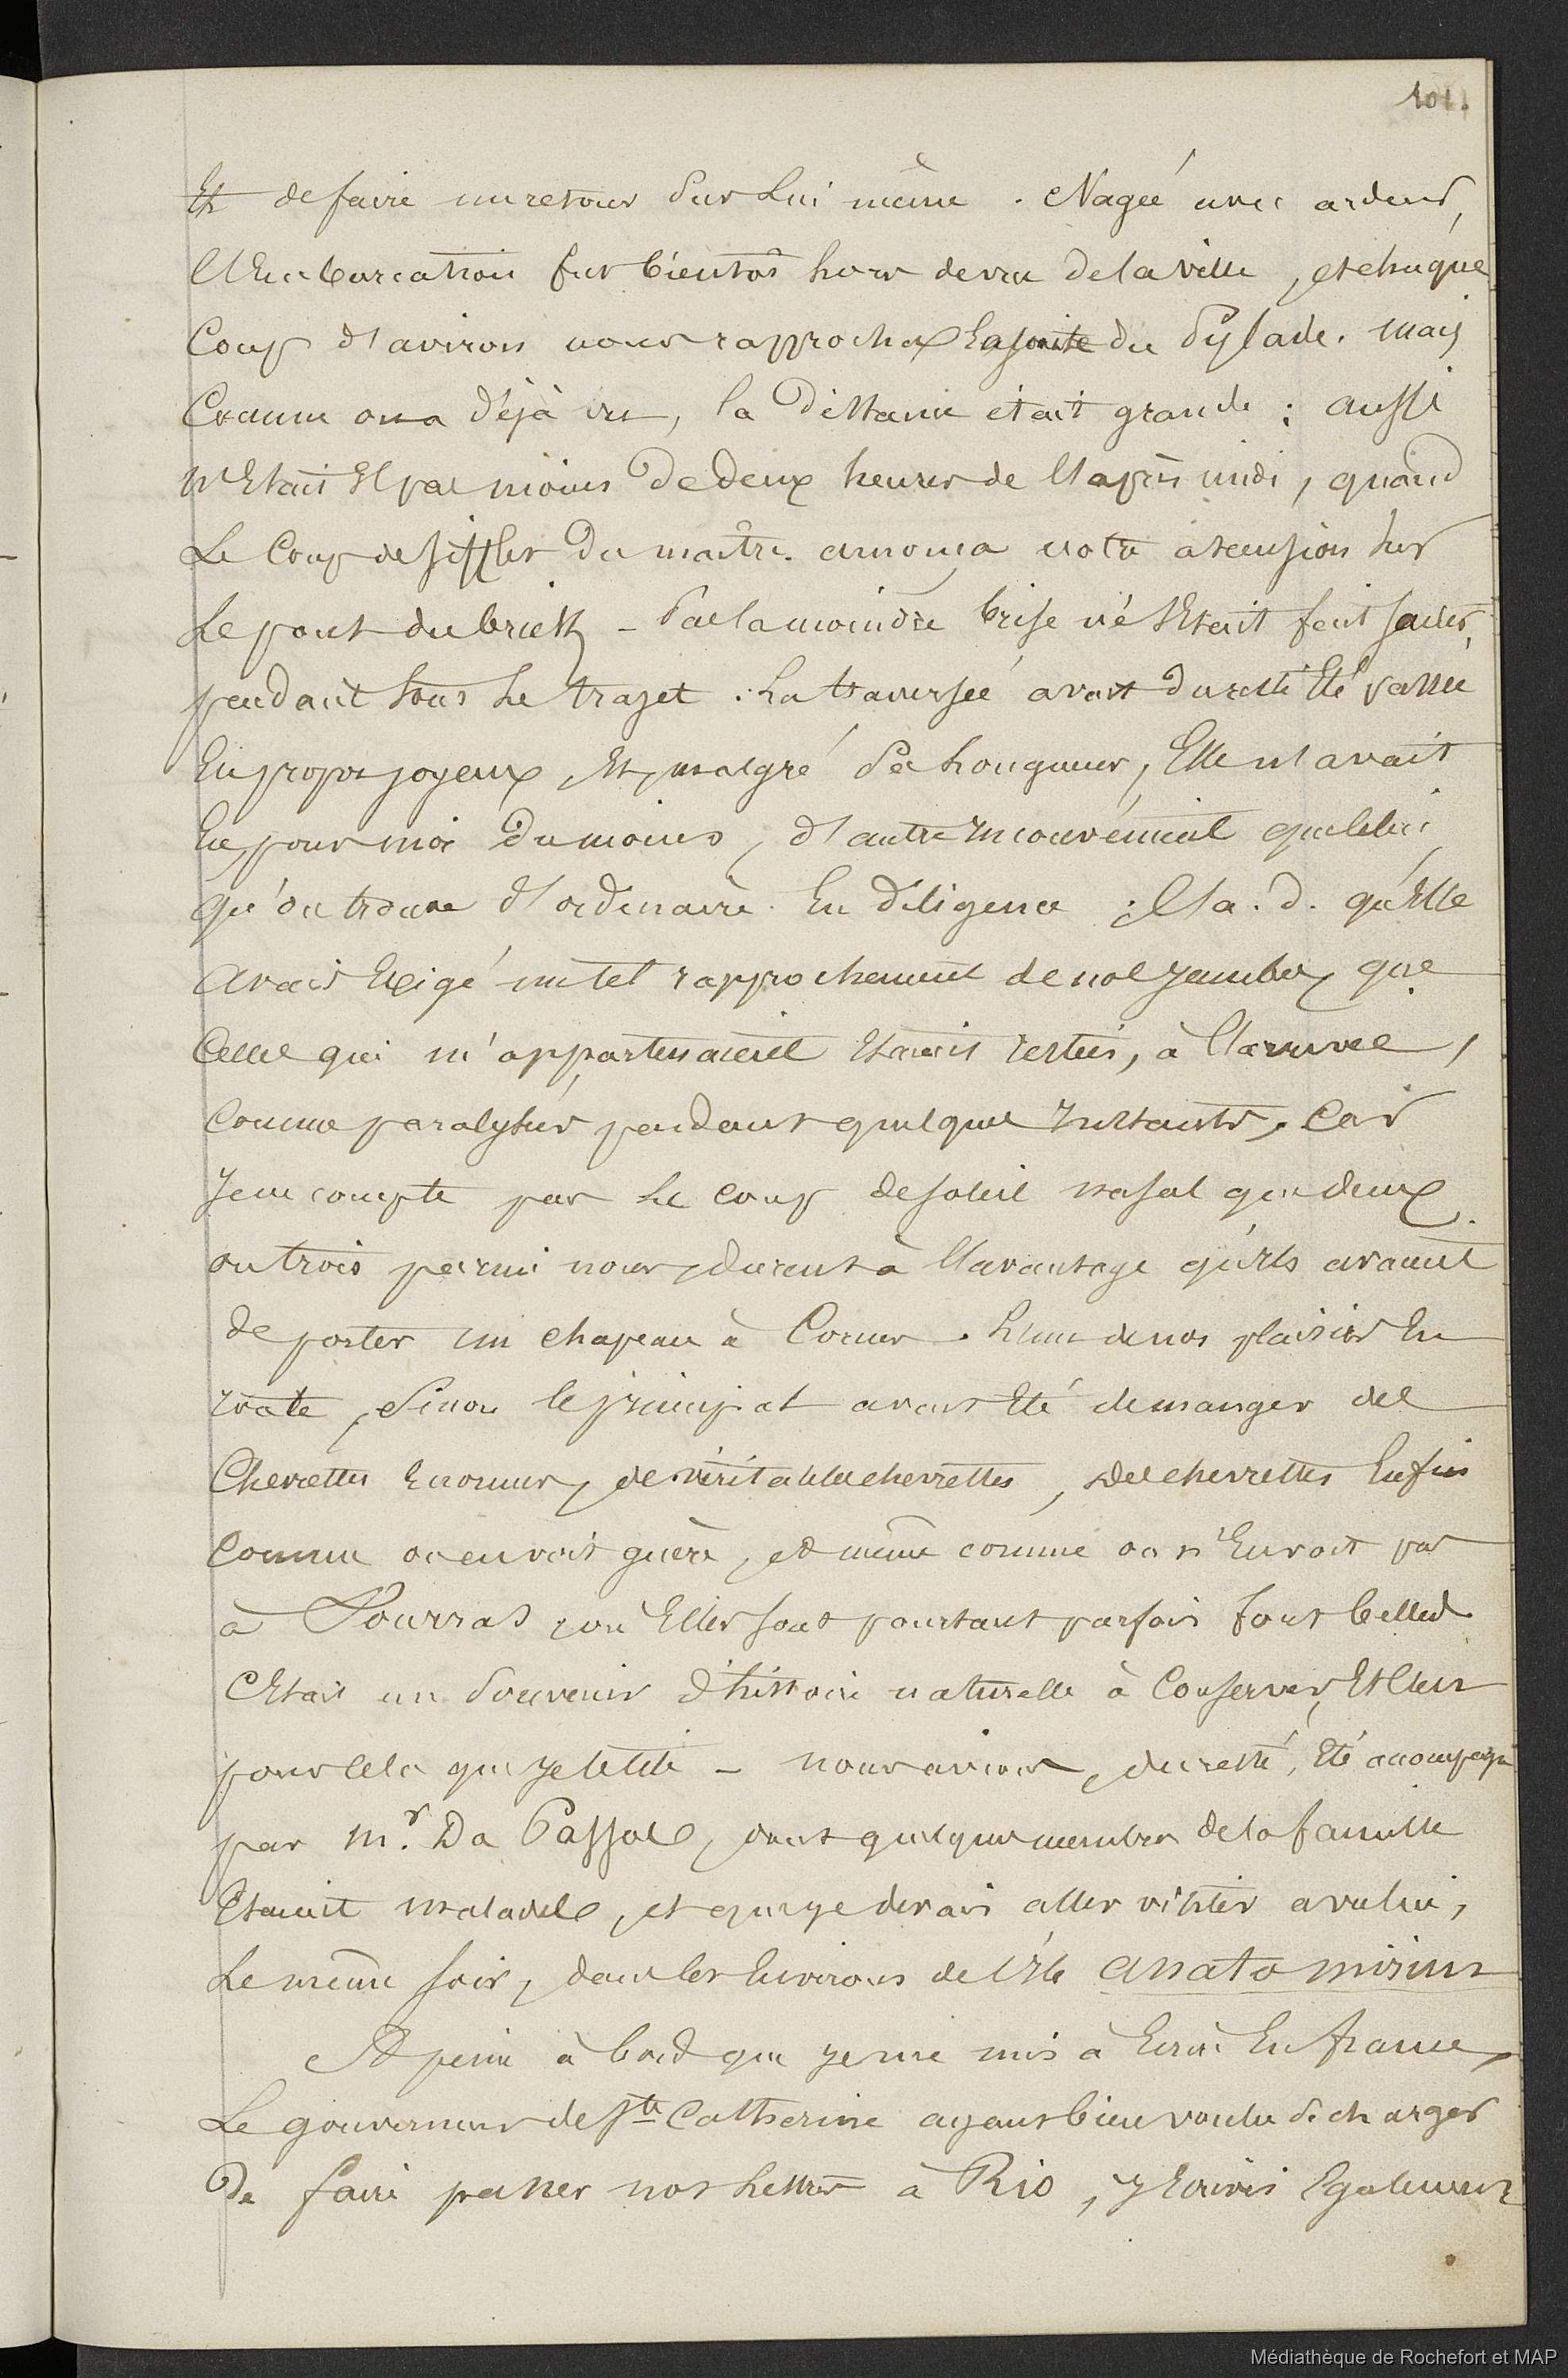 101.
Et de faire un retour sur lui même. Nagée avec ardeur,
l'Embarcation fut bientôt hors de vue de la ville, et chaque
Coup d'aviron nous rapprocha du Pylade. mais
Comme on a déjà vu, la distance était grande ; aussi
n'Etait Il pas moins de deux heures de l'après midi, quand
Le Coup de sifflet du maître annonça notre ascension sur
Le pont du brick _ Pas la moindre brise ne s'Etait fait sentir,
pendant tout le trajet. La traversée avait du reste Eté passée
En propos joyeux, Et, malgré sa longueur, Elle n'avait
Eu, pour moi du moins, d'autre Inconvénient que celui
qu'on trouve d'ordinaire En diligence ; C'a.d. qu'Elle
avait Exigé un tel rapprochement de nos jambes que
Celles qui m'appartenaient Etaient restées, à l'arrivée,
Comme paralysées pendant quelques Instants, Car
Je ne compte pas le coup de soleil nasal que deux
ou trois parmi nous, durent à l'avantage qu'Ils avaient
de porter un chapeau à Cornes. L'un de nos plaisirs En
route, Sinon le principal avait Eté de manger des
Chevrettes Enormes, de véritables chevrettes, des chevrettes Enfin
Comme on en voit guère, et même comme on n'En voit pas
à Fourras, où Elles sont pourtant parfois fort belles.
C'Etait un Souvenir d'histoire naturelle à Conserver, Et C'est
pour cela que Je le cite _ nous avions, du reste, Eté accompagnés
par Mr. Da Passos, dont quelques membres de la famille
Etaient malades, et que je devais aller visiter avec lui,
Le même soir, dans les Environs de l'Ile anato mirim
A peine à bord que Je me mis à Ecrire En france,
Le gouverneur de Ste Catherine ayant bien voulu se charger
De faire passer nos lettres à Rio, J'Ecrivis Egalement
Médiathèque de Rochefort et MAP